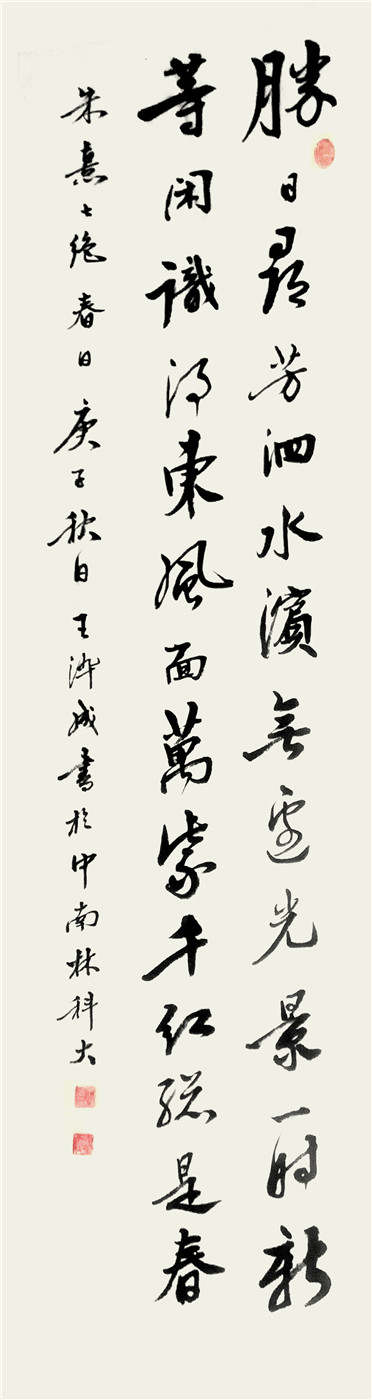 勝日尋芳泗水濱無邊光景一時新
等閑識得東風面萬紫千紅總是春
朱熹七絕春日庚子秋日王澕成書於中南林科大